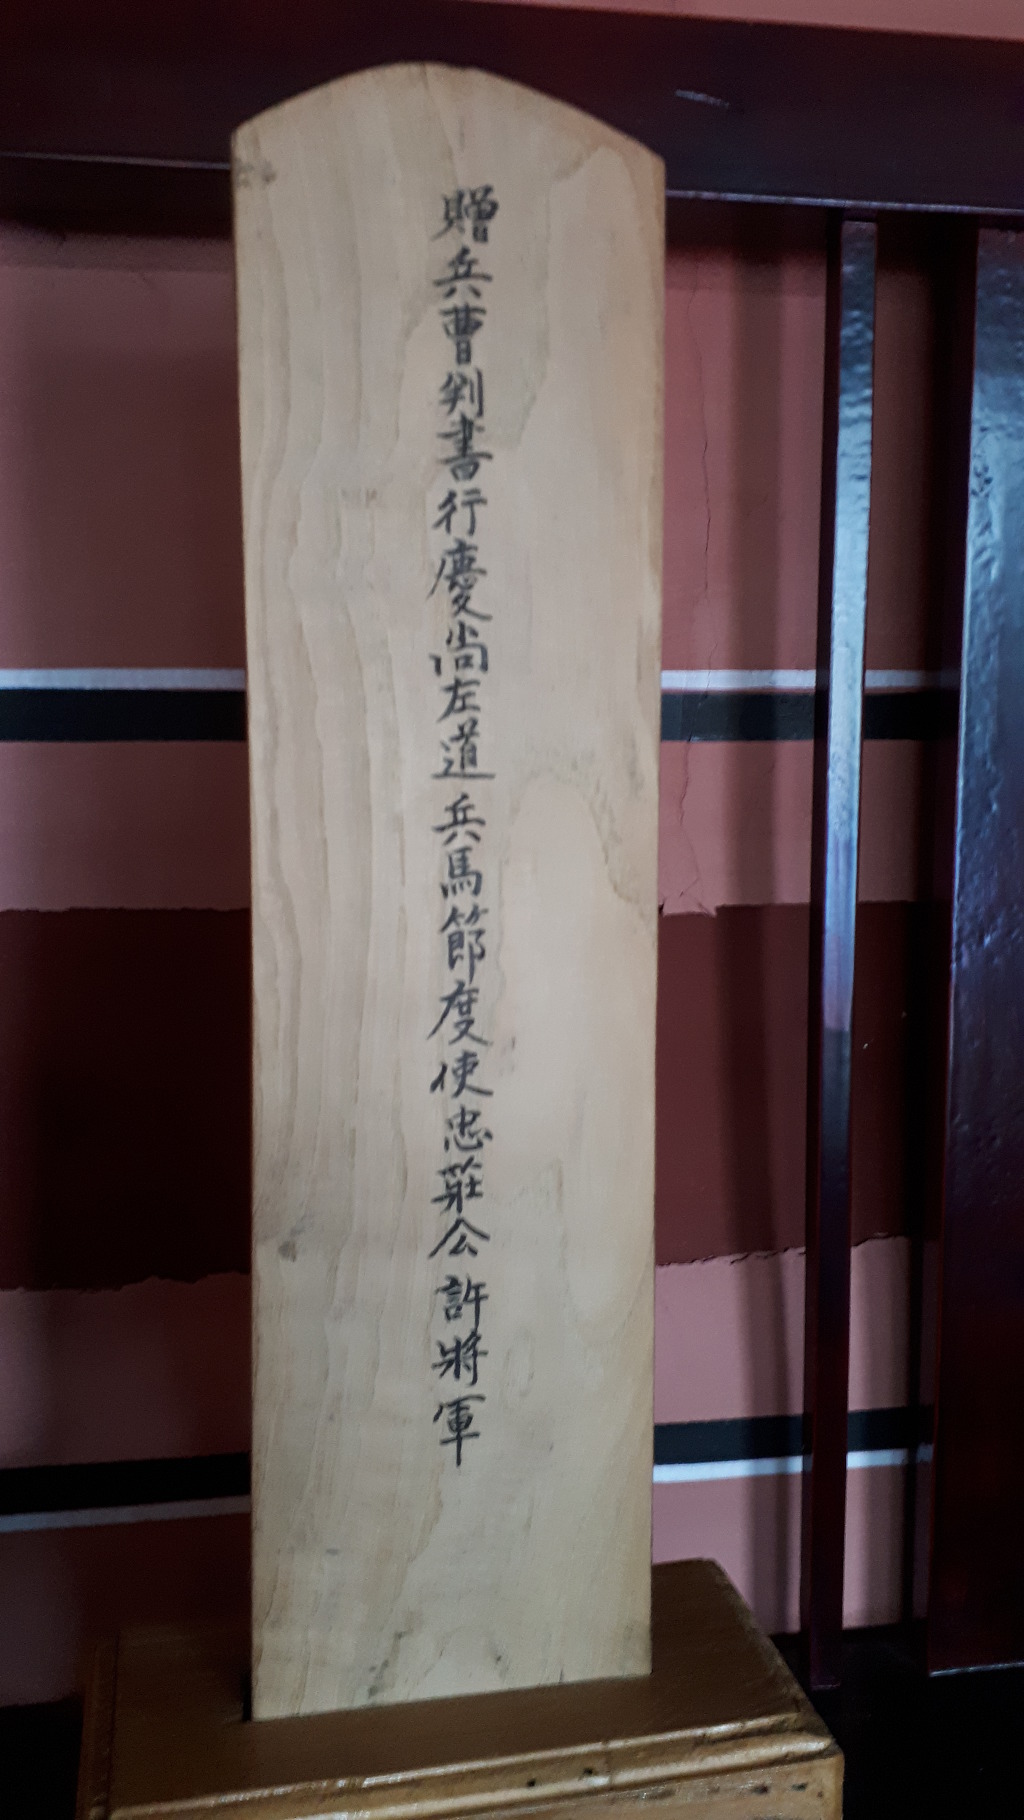 贈兵曹判書行慶尚左道兵馬節度使忠莊公許將軍